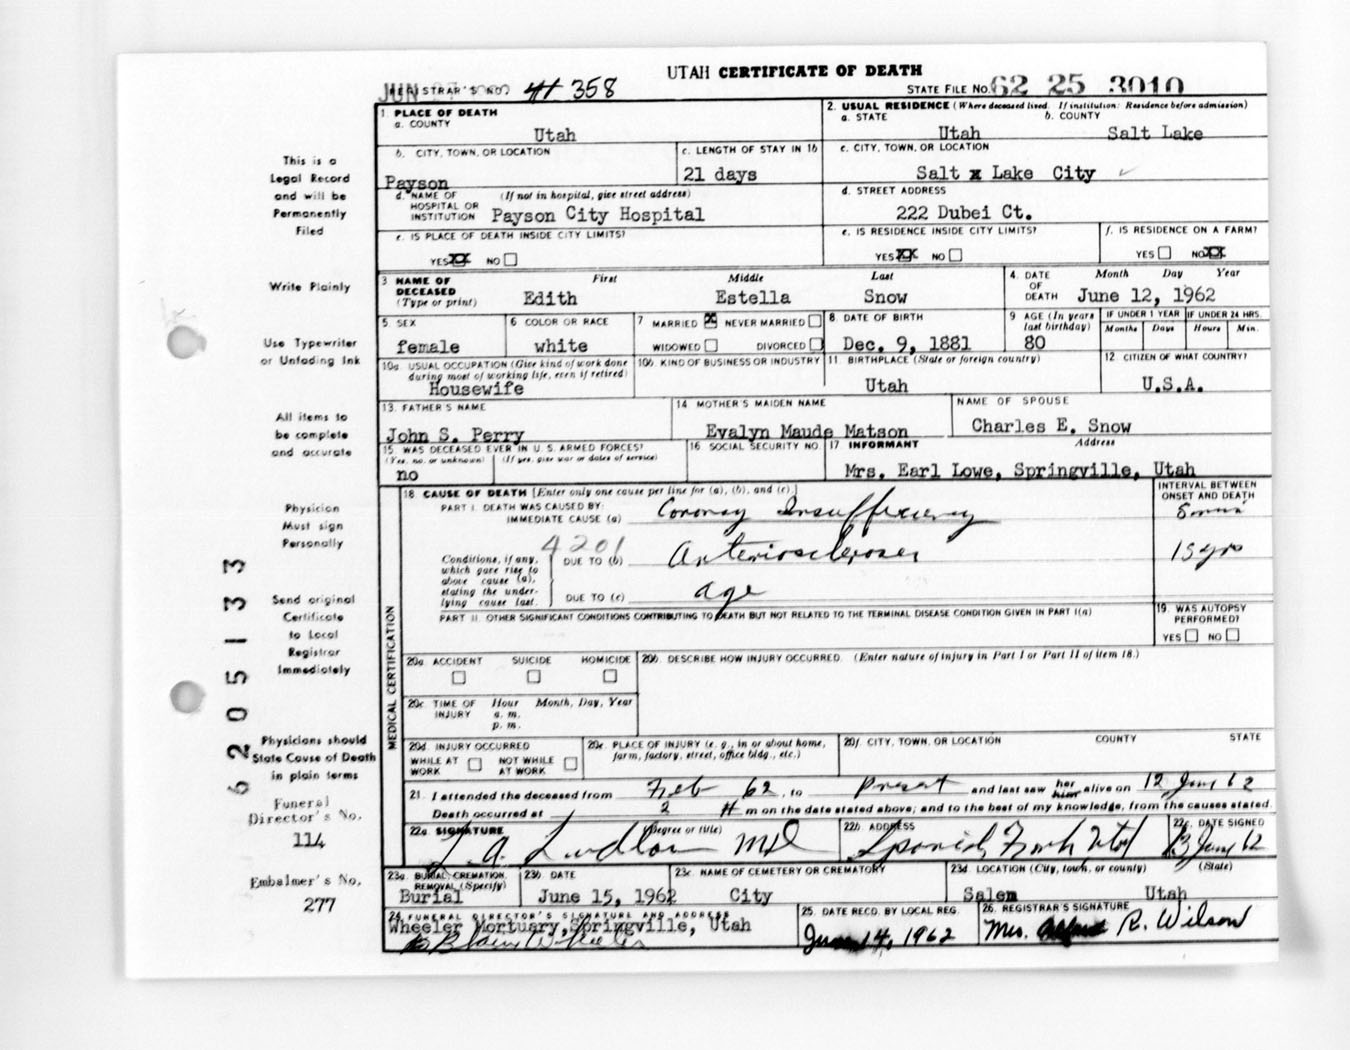 UTAH CERTIFICATE OF DEATH
REGISTRAR'S NO. 358
STATE FILE NO. 62 25 3010
1. PLACE OF DEATH
a. COUNTY
Utah
2. USUAL RESIDENCE (Where deceased lived. If institution: Residence before admission)
a. STATE b. COUNTY
Utah Salt Lake
b. CITY, TOWN, OR LOCATION
Payson
c. LENGTH OF STAY IN 1b
21 days
c. CITY, TOWN, OR LOCATION
Salt x Lake City
d. NAME OF HOSPITAL OR INSTITUTION (If not in hospital, give street address)
Payson City Hospital
d. STREET ADDRESS
222 Dubei Ct.
e. IS PLACE OF DEATH INSIDE CITY LIMITS?
YES XX NO
e. IS RESIDENCE INSIDE CITY LIMITS?
YES XX NO
f. IS RESIDENCE ON A FARM?
YES NO XX
3 NAME OF DECEASED (Type or print)
First Middle Last
Edith Estella Snow
4. DATE OF DEATH
Month Day Year
June 12, 1962
5 SEX
female
6 COLOR OR RACE
white
7 MARRIED X NEVER MARRIED
WIDOWED DIVORCED
8. DATE OF BIRTH
Dec. 9, 1881
9 AGE (In years last birthday)
80
IF UNDER 1 YEAR
Months Days
IF UNDER 24 HRS.
Hours Min.
10a. USUAL OCCUPATION (Give kind of work done during most of working life, even if retired)
Housewife
10b. KIND OF BUSINESS OR INDUSTRY
11 BIRTHPLACE (State or foreign country)
Utah
12 CITIZEN OF WHAT COUNTRY?
U.S.A.
13. FATHER'S NAME
John S. Perry
14 MOTHER'S MAIDEN NAME
Evalyn Maude Matson
NAME OF SPOUSE
Charles E. Snow
15. WAS DECEASED EVER IN U. S. ARMED FORCES?
(Yes, no, or unknown) (If yes, give war or dates of service)
no
16 SOCIAL SECURITY NO.
17 INFORMANT Address
Mrs. Earl Lowe, Springville, Utah
18 CAUSE OF DEATH [Enter only one cause per line for (a), (b), and (c).]
INTERVAL BETWEEN ONSET AND DEATH
PART I. DEATH WAS CAUSED BY:
IMMEDIATE CAUSE (a) Coronary Insufficiency
4201
Conditions, if any, which gave rise to above cause (a), stating the under-lying cause last.
DUE TO (b) Arteriosclerosis 15 yrs
DUE TO (c) age
PART II. OTHER SIGNIFICANT CONDITIONS CONTRIBUTING TO DEATH BUT NOT RELATED TO THE TERMINAL DISEASE CONDITION GIVEN IN PART I(a)
19. WAS AUTOPSY PERFORMED?
YES NO
MEDICAL CERTIFICATION
20a. ACCIDENT SUICIDE HOMICIDE
20b. DESCRIBE HOW INJURY OCCURRED. (Enter nature of injury in Part I or Part II of item 18.)
20c. TIME OF INJURY
Hour Month, Day, Year
a. m.
p. m.
20d. INJURY OCCURRED
WHILE AT WORK NOT WHILE AT WORK
20e. PLACE OF INJURY (e. g., in or about home, farm, factory, street, office bldg., etc.)
20f. CITY, TOWN, OR LOCATION COUNTY STATE
21. I attended the deceased from Feb 62, to Present and last saw her him alive on 12 June 62
Death occurred at 2 m on the date stated above; and to the best of my knowledge, from the causes stated.
22a. SIGNATURE (Degree or title)
L. A. Ludlow MD
22b. ADDRESS
Spanish Fork Utah
22c. DATE SIGNED
13 June 62
23a. BURIAL, CREMATION, REMOVAL (Specify)
Burial
23b. DATE
June 15, 1962
23c. NAME OF CEMETERY OR CREMATORY
City
23d. LOCATION (City, town, or county) (State)
Salem Utah
24. FUNERAL DIRECTOR'S SIGNATURE AND ADDRESS
Wheeler Mortuary, Springville, Utah
25. DATE RECD. BY LOCAL REG.
June 14, 1962
26. REGISTRAR'S SIGNATURE
Mrs. R. Wilson
This is a
Legal Record
and will be
Permanently
Filed
Write Plainly
Use Typewriter
or Unfading Ink
All items to
be complete
and accurate
Physician
Must sign
Personally
Send original
Certificate
to Local
Registrar
Immediately
Physicians should
State Cause of Death
in plain terms
Funeral
Director's No.
114
Embalmer's No.
277
6205133